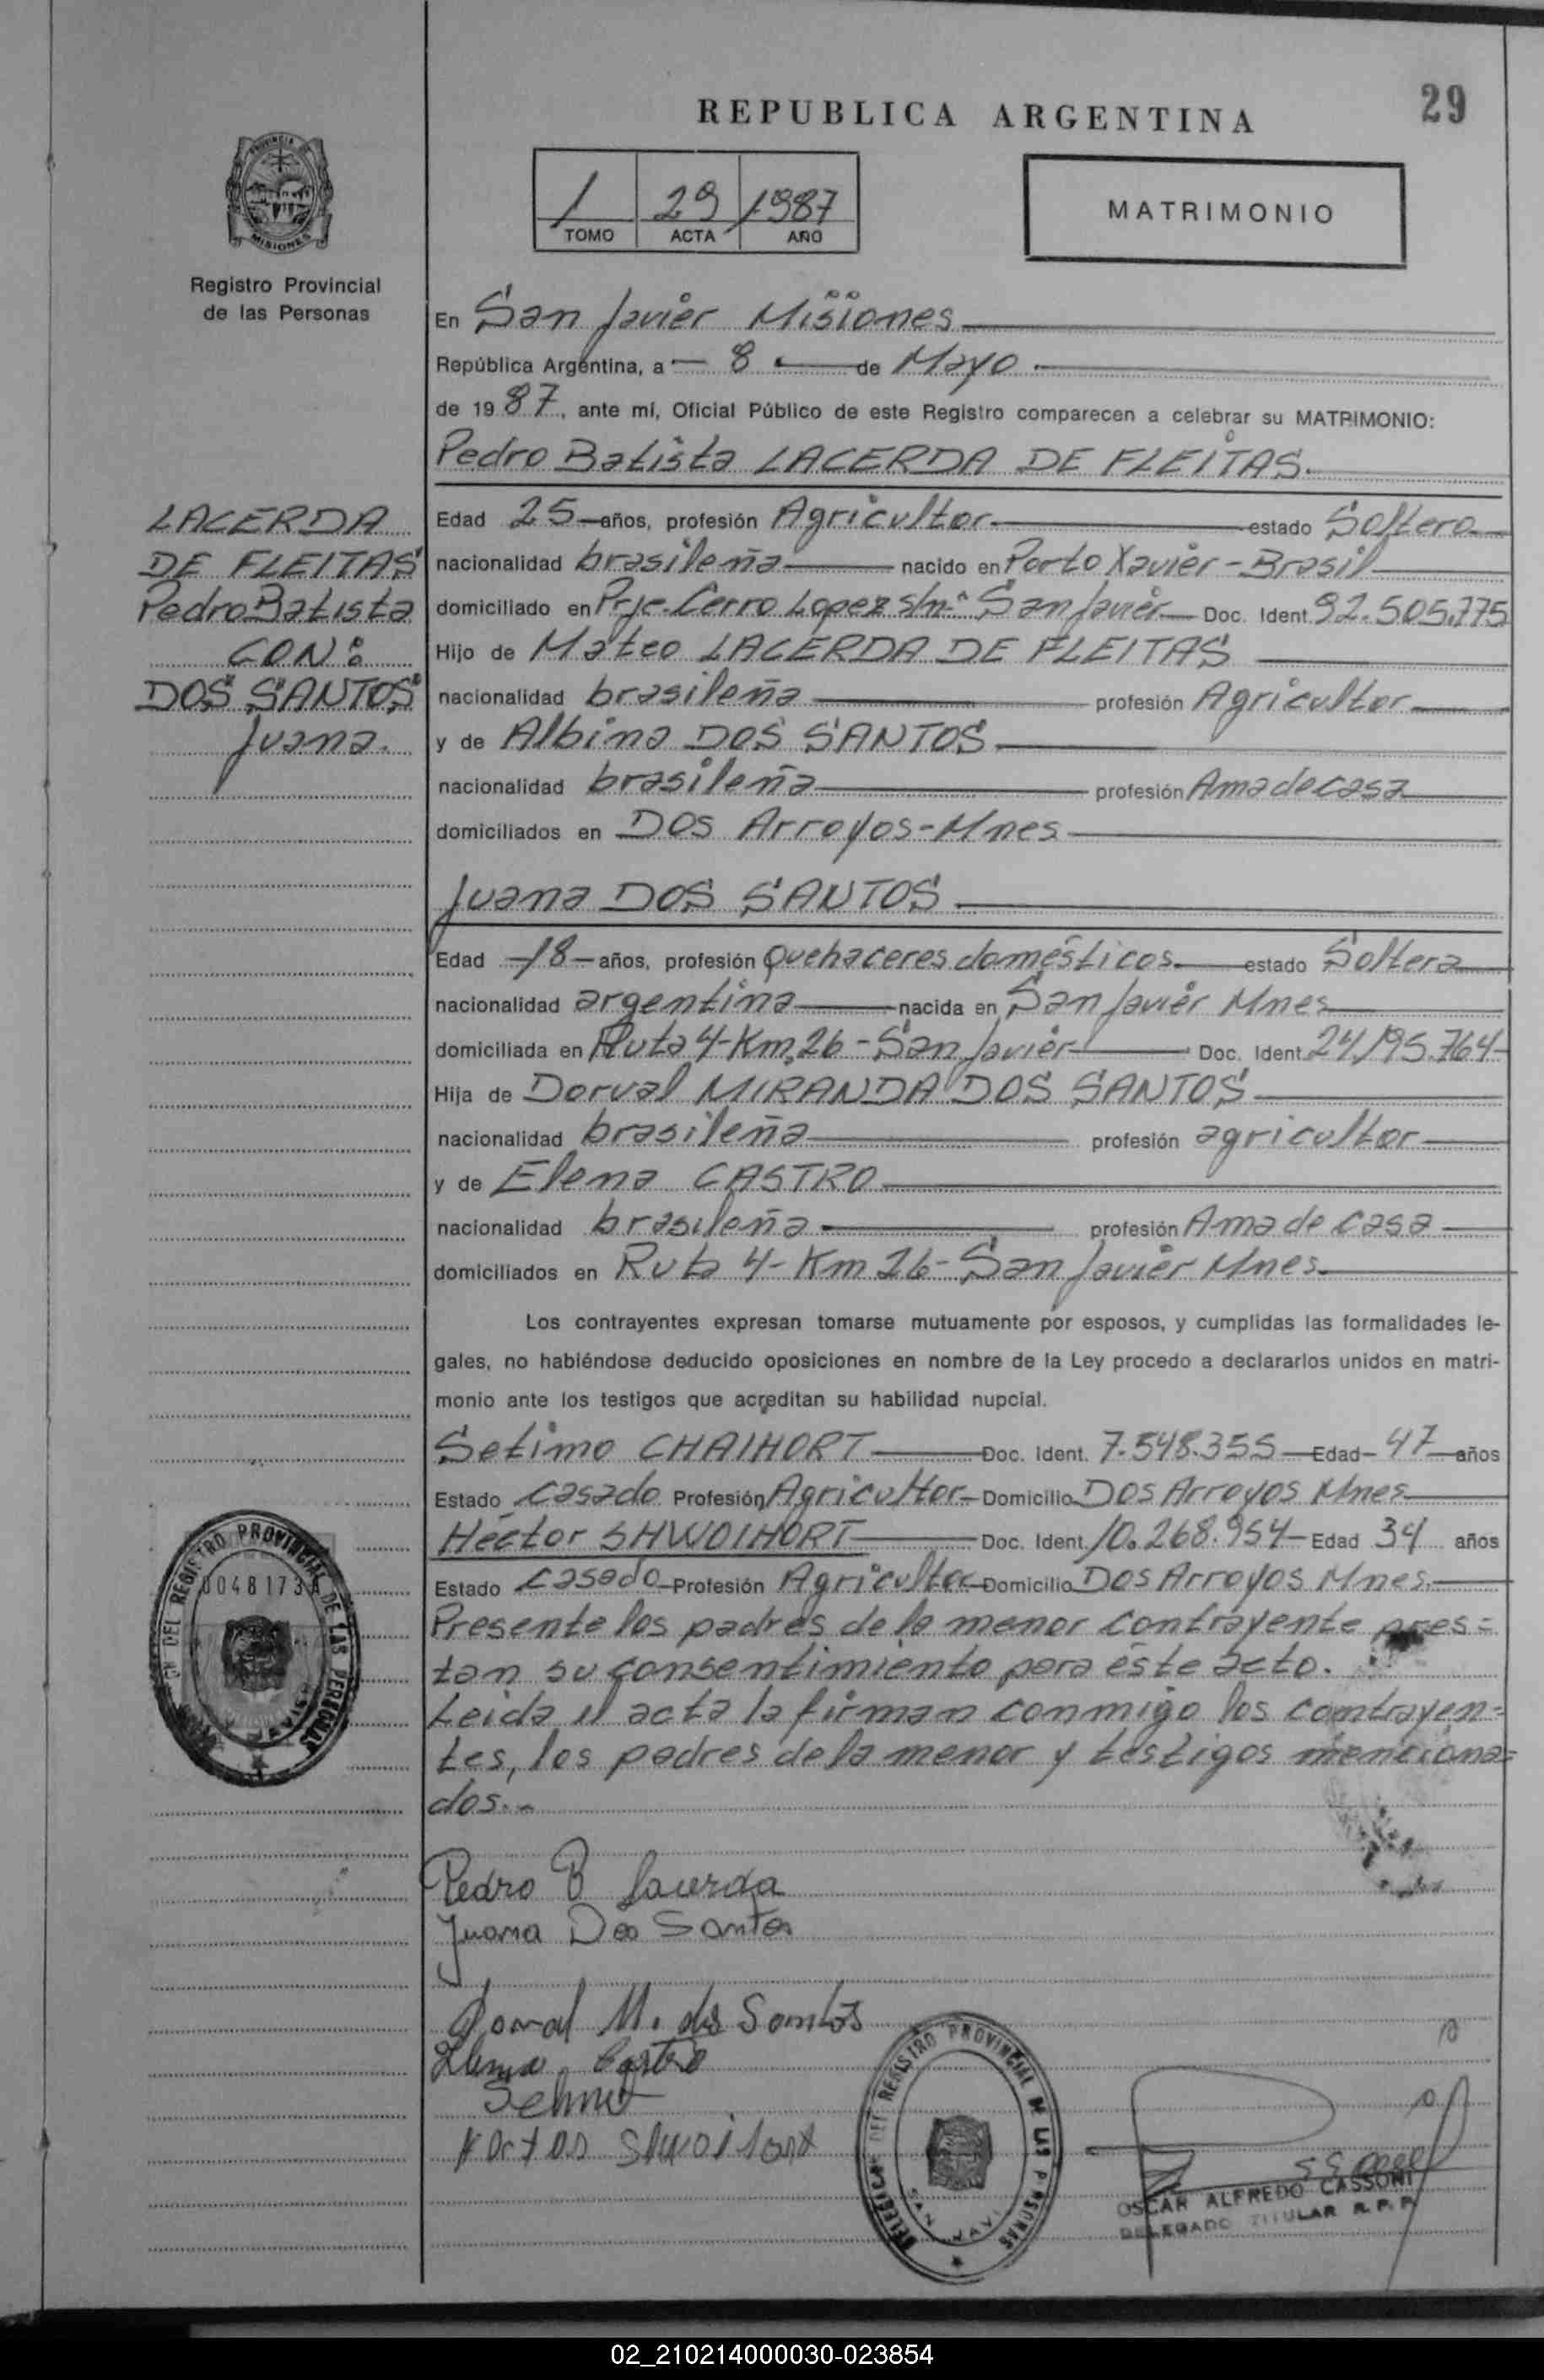 29
REPUBLICA ARGENTINA
1 29 1987
TOMO ACTA AÑO
MATRIMONIO
PROVINCIA
MISIONES
Registro Provincial
de las Personas
En San Javier Misiones
República Argentina, a 8 de Mayo
de 1987, ante mí, Oficial Público de este Registro comparecen a celebrar su MATRIMONIO:
Pedro Batista LACERDA DE FLEITAS.
LACERDA
DE FLEITAS
Pedro Batista
CON:
DOS SANTOS
Juana.
Edad 25 años, profesión Agricultor estado Soltero
nacionalidad brasileña nacido en Porto Xavier - Brasil
domiciliado en Pje. Cerro Lopez s/nº San Javier Doc. Ident. 92.505.775
Hijo de Mateo LACERDA DE FLEITAS
nacionalidad brasileña profesión Agricultor
y de Albina DOS SANTOS
nacionalidad brasileña profesión Ama de casa
domiciliados en Dos Arroyos-Mnes
Juana DOS SANTOS
Edad 18 años, profesión Quehaceres domésticos estado Soltera
nacionalidad argentina nacida en San Javier Mnes
domiciliada en Ruta 4-Km.26-San Javier Doc. Ident. 24.195.764
Hija de Dorval MIRANDA DOS SANTOS
nacionalidad brasileña profesión agricultor
y de Elena CASTRO
nacionalidad brasileña profesión Ama de casa
domiciliados en Ruta 4-Km 26-San Javier Mnes.
Los contrayentes expresan tomarse mutuamente por esposos, y cumplidas las formalidades le-
gales, no habiéndose deducido oposiciones en nombre de la Ley procedo a declararlos unidos en matri-
monio ante los testigos que acreditan su habilidad nupcial.
Setimo CHAIHORT Doc. Ident. 7.548.355 Edad 47 años
Estado Casado Profesión Agricultor Domicilio Dos Arroyos Mnes
Héctor SHWOIHORT Doc. Ident. 10.268.954 Edad 34 años
Estado Casado Profesión Agricultor Domicilio Dos Arroyos Mnes.
Presente los padres de la menor contrayente pres=
tan su consentimiento para éste acto.
Leida el acta la firman conmigo los contrayen=
tes, los padres de la menor y testigos menciona=
dos.
DEL REGISTRO PROVINCIAL DE LAS PERSONAS
Pedro B Lacerda
Juana Dos Santos
Dorval M. dos Santos
Elena Castro
DELEGACION DEL REGISTRO PROVINCIAL DE LAS PERSONAS
SAN JAVI
OSCAR ALFREDO CASSONI
DELEGADO TITULAR R.P.P.
02_210214000030-023854